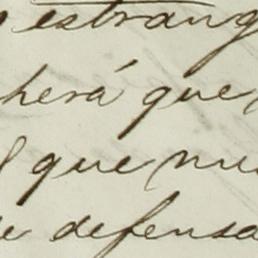 estrang
herá que
que nu
de defensa